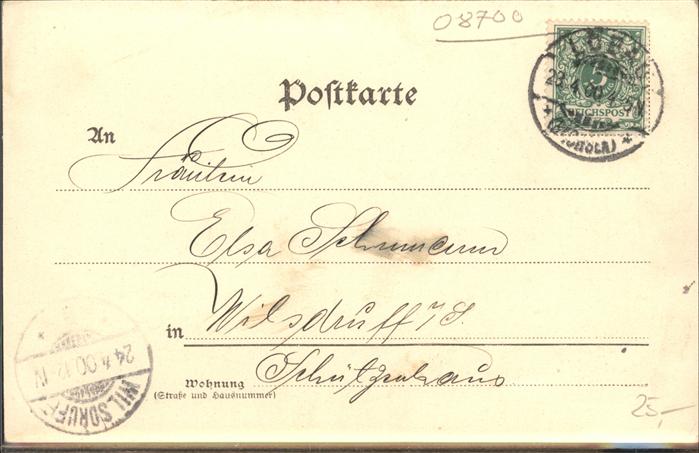 08700
5
REICHSPOST
23.4.00
Postkarte
An
Fräulein
Elsa Schumann
in Wilsdruff i/S.
Wohnung Schützenhaus
(Straße und Hausnummer)
24.4.00.12-1V
WILSDRUFF
25,-